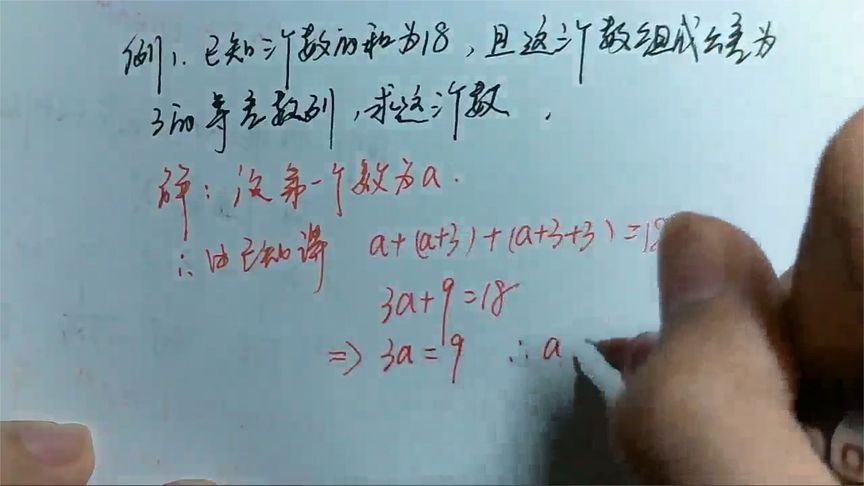 例1. 已知三个数的和为18，且这三个数组成公差为
3的等差数列，求这三个数.
解：设第一个数为a.
∴由已知得 a+(a+3)+(a+3+3)=18
3a+9=18
⇒ 3a=9 ∴a